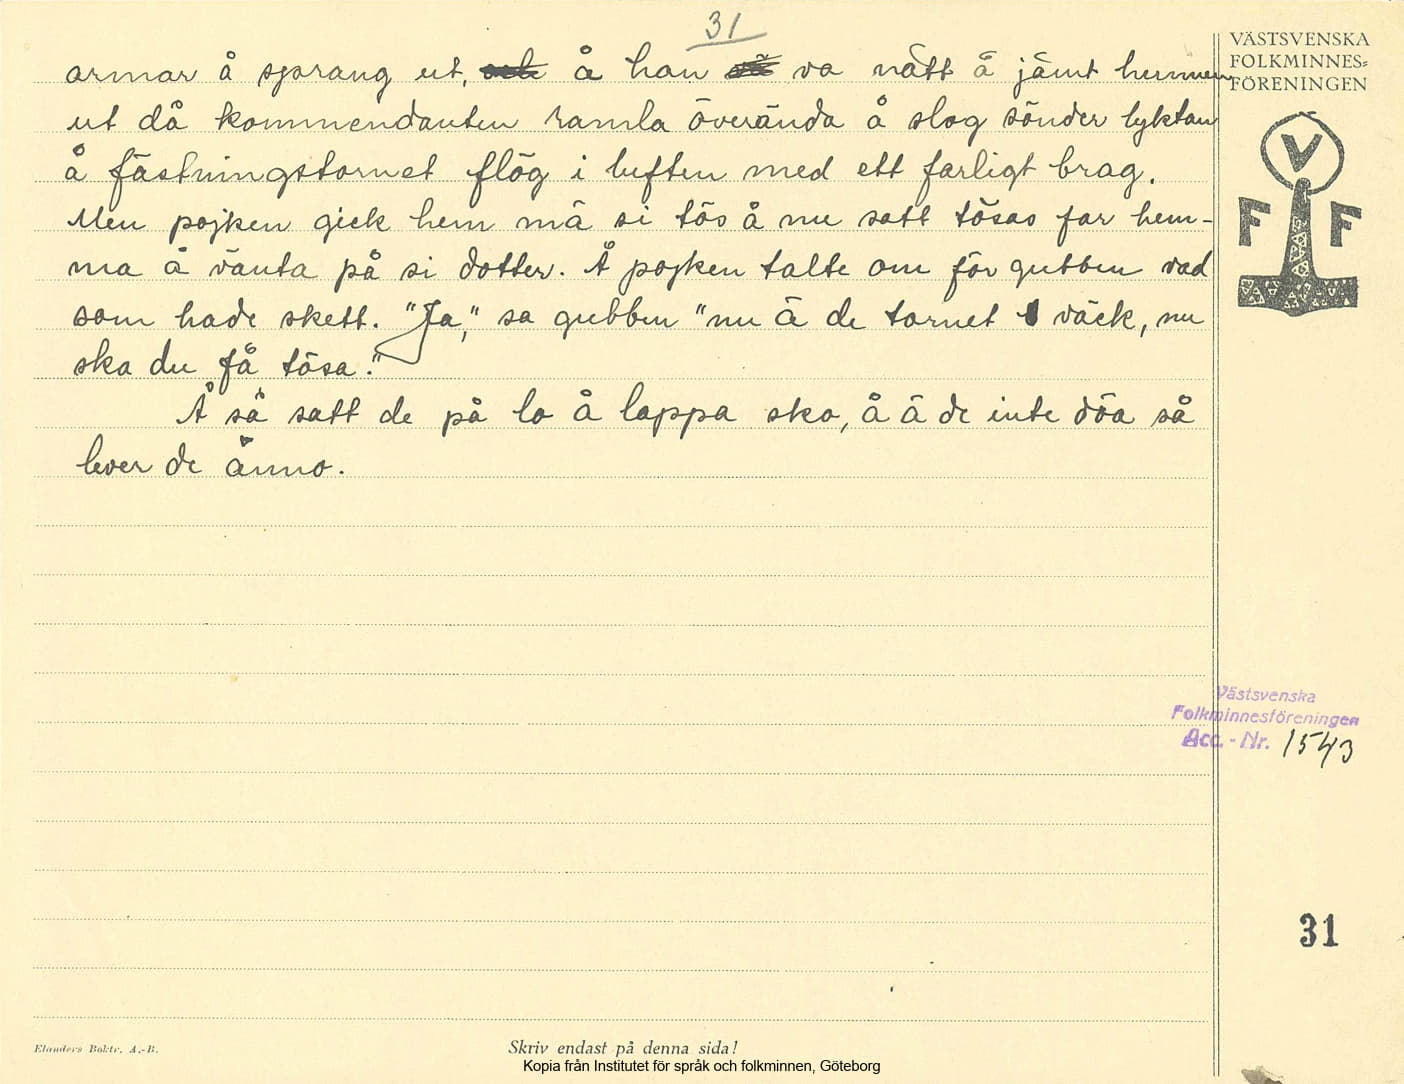 31
armar å sprang ut, å han va nätt å jämt hunnen
ut då kommendanten ramla överända å slog sönder lyktan
å fästningstornet flög i luften med ett farligt brag.
Men pojken gick hem mä si tös å nu satt tösas far hem-
ma å vänta på si dotter. Å pojken talte om för gubben vad
som hade skett. "Ja," sa gubben "nu ä de tornet väck, nu
ska du få tösa."
Å så satt de på lo å lappa sko, å ä de inte döa så
lever de änno.
VÄSTSVENSKA
FOLKMINNES=
FÖRENINGEN
V
F F
Västsvenska
Folkminnesföreningen
Acc. - Nr. 1543
31
Elanders Boktr. A.-B.
Skriv endast på denna sida!
Kopia från Institutet för språk och folkminnen, Göteborg